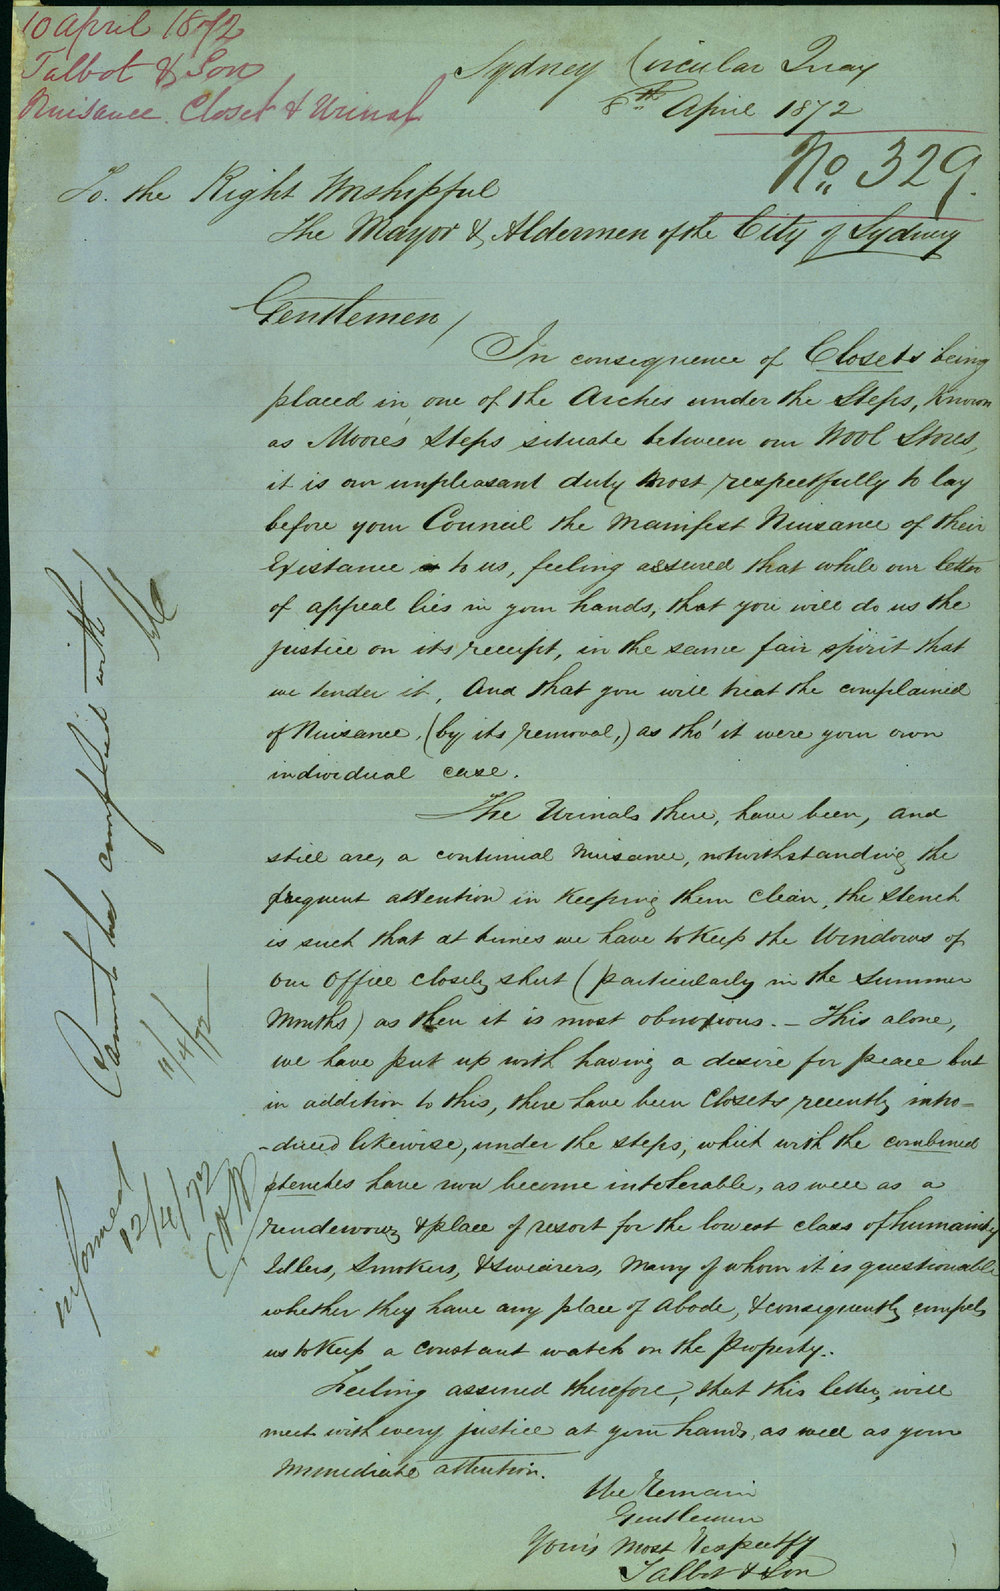 10 April 1872
Talbot & Son
Nuisance Closet & Urinal
Sydney Circular Quay
8th April 1872
No. 329.
To. the Right Worshipful
The Mayor & Aldermen of the City of Sydney
Gentlemen,
In consequence of Closets being
placed in one of the Arches under the Steps, Known
as Moore's Steps situate between our Wool Stores,
it is our unpleasant duty most respectfully to lay
before your Council the manifest Nuisance of their
Existance to us, feeling assured that while our letter
of appeal lies in your hands, that you will do us the
justice on its receipt, in the same fair spirit that
we tender it, And that you will treat the complained
of Nuisance, (by its removal,) as tho' it were your own
individual case.
The Urinals there, have been, and
still are, a continual Nuisance, notwithstanding the
frequent attention in Keeping them clean, the stench
is such that at times we have to Keep the Windows of
our Office closely shut (particularly in the Summer
Months) as then it is most obnoxious. — This alone,
we have put up with having a desire for peace but
in addition to this, there have been Closets recently intro-
-duced likewise, under the steps, which with the combined
stenches have now become intolerable, as well as a
rendevouz & place of resort for the lowest class of humanity
Idlers, Smokers, & Swearers, Many of whom it is questionable
whether they have any place of Abode, & consequently compels
us to Keep a constant watch on the Property.
Feeling assured therefore, that this letter, will
meet with every justice at your hands, as well as your
immediate attention.
We Remain
Gentlemen
Your's Most Respectfy
Talbot & Son
Cannot be complied with
11/4/72
informed
12/4/72